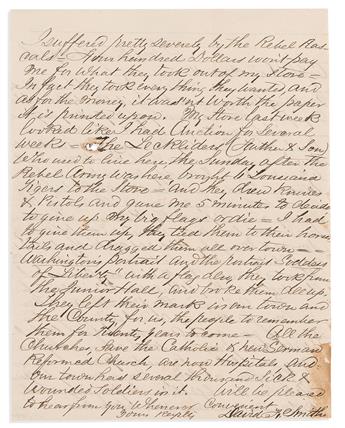 I suffered pretty severely by the Rebel Ras-
cals = Four hundred Dollars won't pay
me for what they took out of my Store =
In fact they took every thing they wanted and
as for the money, it was'nt worth the paper
it is printed upon. My Store last week
looked like I had Auction for several
weeks = The (Father & Son)
who used to live here, the Sunday after the
Rebel Army was here, brought 6 Louisiana
Tigers to the Store = and they drew Knives
& Pistols and gave me 5 minutes to decide
to give up my big flags or die = I had
to give them up, they tied them to their horses
tails and dragged them all over town =
Washington's portrait and the "Goddess
of Liberty" with a flag they took from
the Junior Hall, and took them all up.
They left their mark in our town and
the County for us, the people to remember
them for twenty years to come = All the
Churches, save the Catholic & new German
Reformed Church, are now Hospitals and
our town has several thousand Sick &
Wounded Soldiers in it. Will be pleased
to hear from you whenever Convenient
Yours Resply Smith